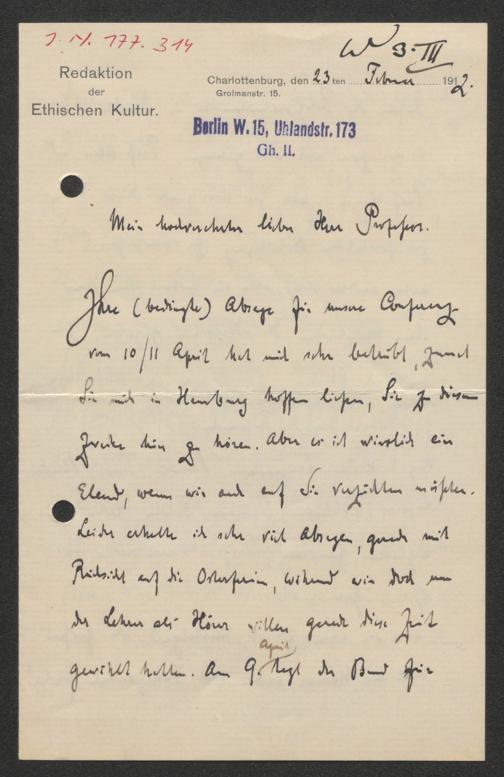 J. N. 177.314
W 3. III
Redaktion
der
Ethischen Kultur.
Charlottenburg, den 23 ten Februar 1912.
Grolmanstr. 15.
Berlin W. 15, Uhlandstr. 173
Gh. II.
Mein hochverehrter lieber Herr Professor.
Ihre (bedingte) Absage für unsere Conferenz
vom 10/11 April hat mich sehr betrübt, zumal
Sie mich in Hamburg hoffen ließen, Sie zu diesem
Zwecke hier zu hören. Aber es ist wirklich ein
Elend, wenn wir auch auf Sie verzichten müssten.
Leider erhalte ich sehr viel Absagen, gerade mit
Rücksicht auf die Osterferien, während wir doch um
der Lehrer als Hörer willen gerade diese Zeit
gewählt hatten. Am 9. April tagt der Bund für